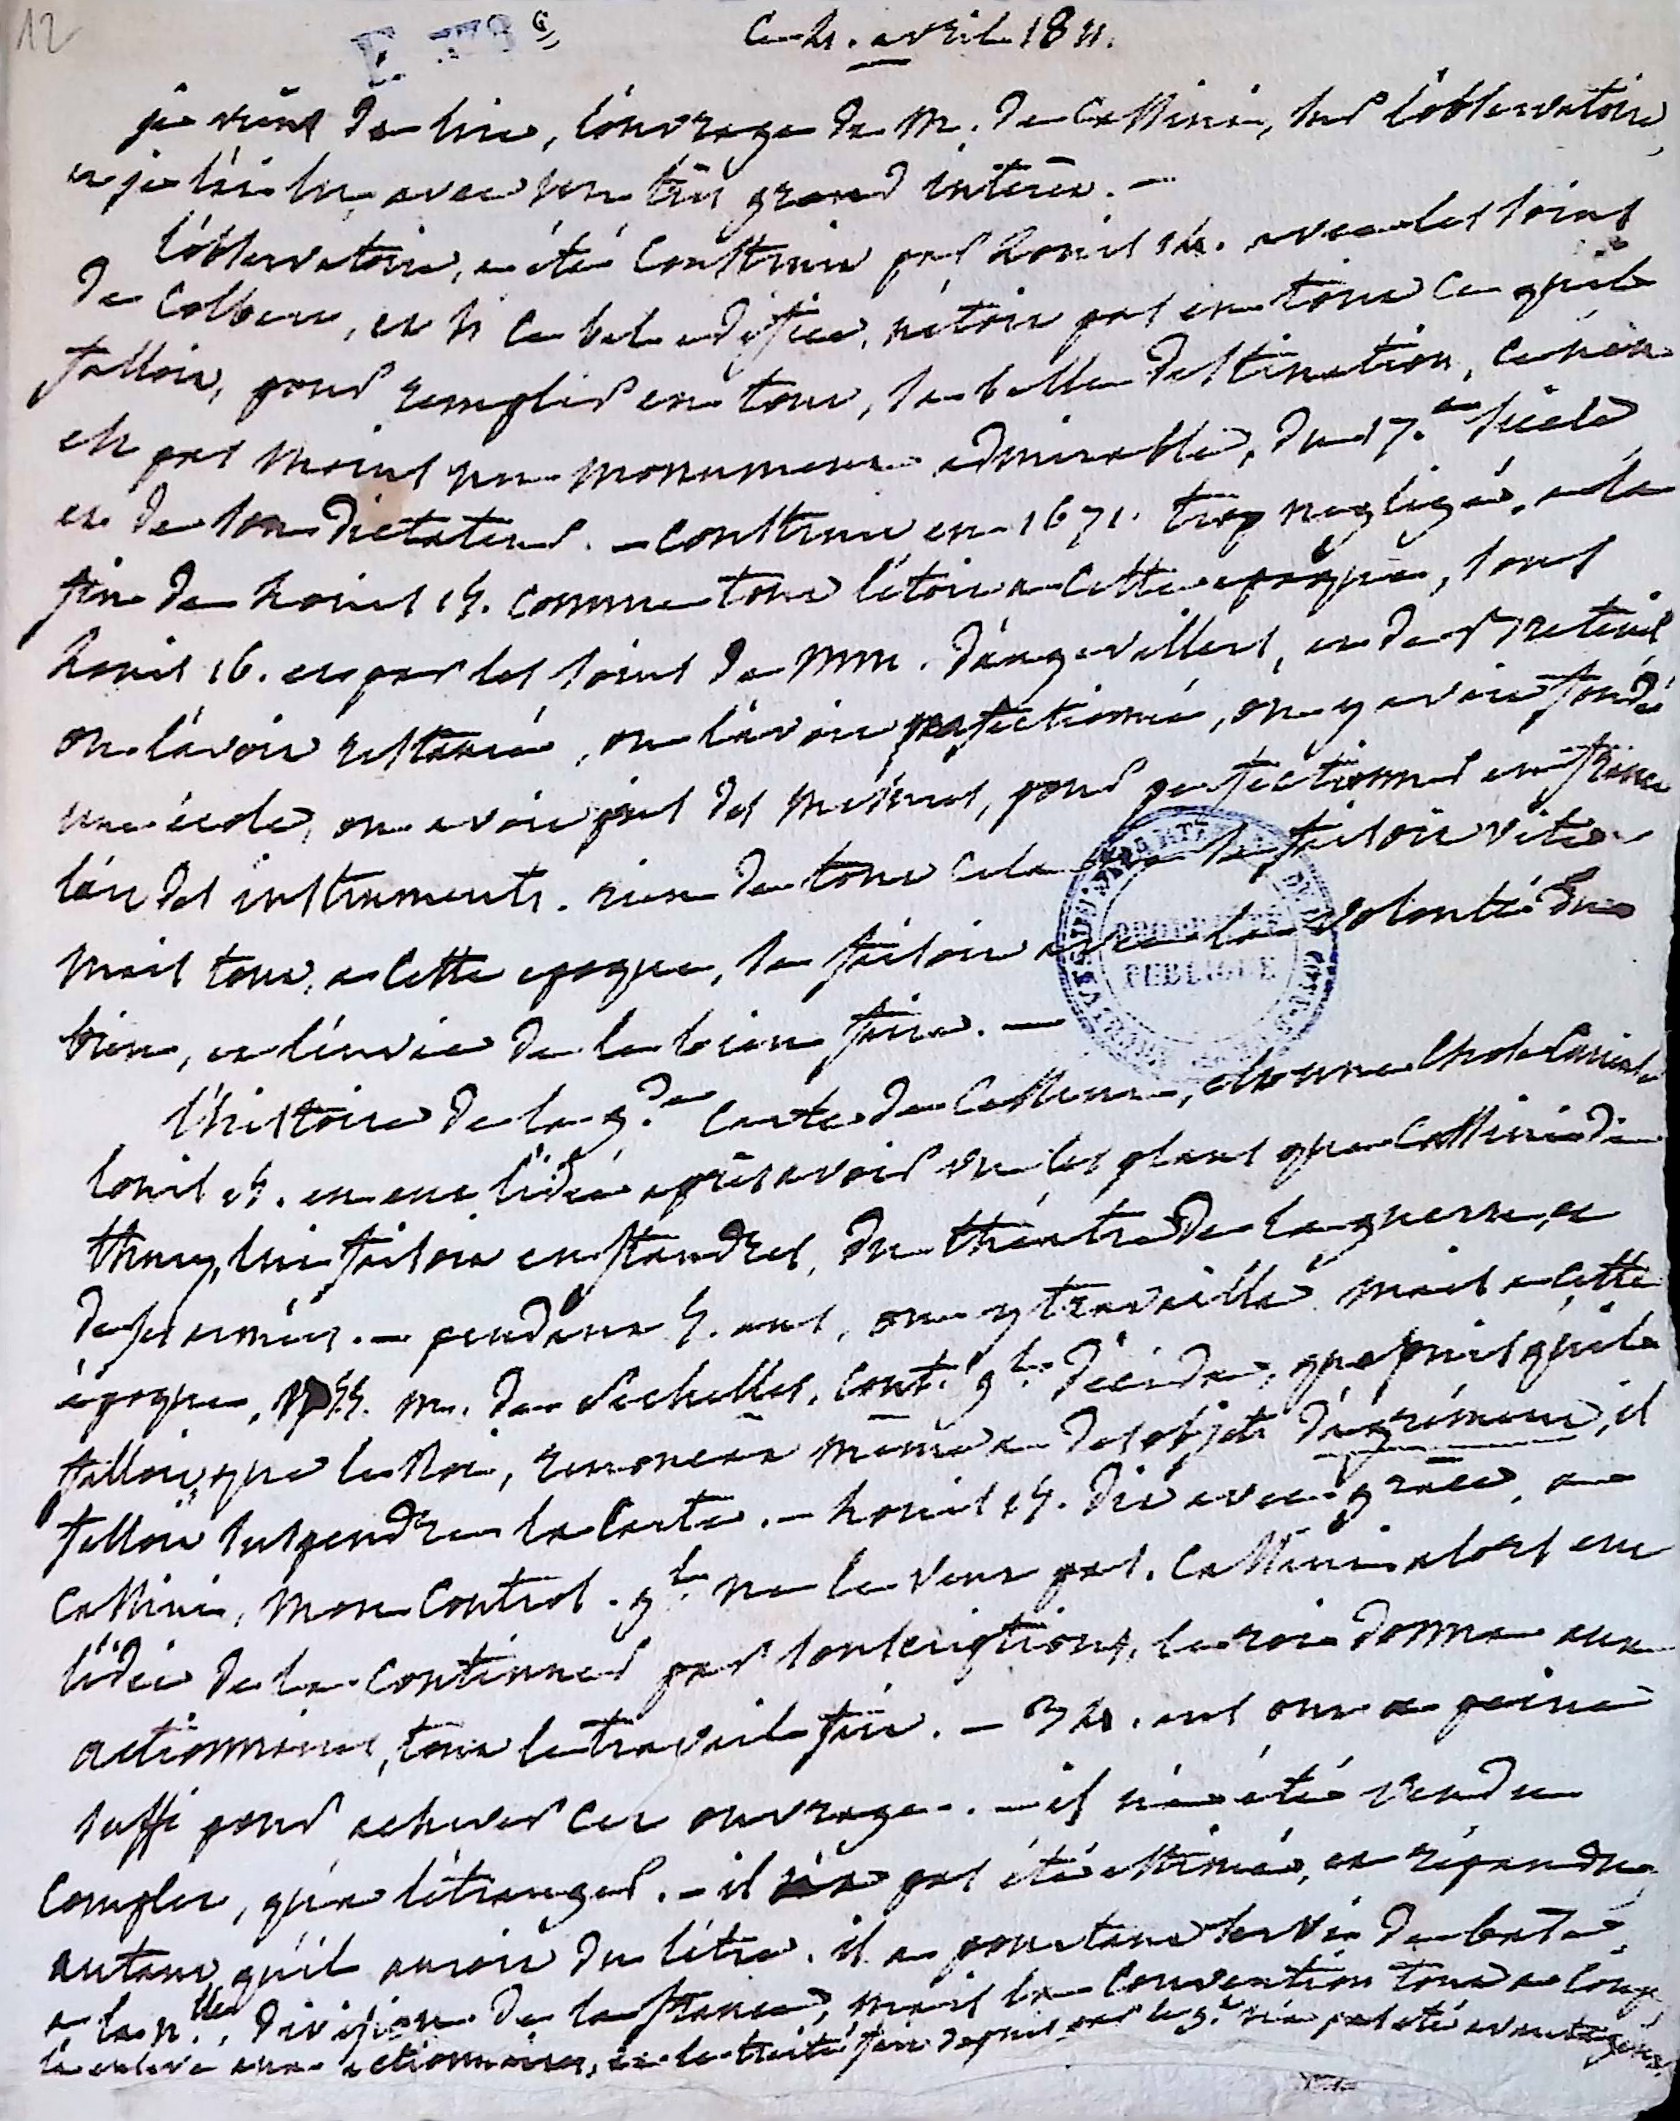 12
ce 21. avril 1811.
je viens de lire, l'ouvrage de M. de Cassini, sur l'observatoire,
et je l'ai lu, avec un très grand intérêt. —
l'observatoire, a été construit par Louis 14. avec les soins
de Colbert, et si ce bel edifice, n'étoit pas en tout ce qu'il
falloit, pour remplir en tout, sa belle destination, ce n'en
est pas moins un monument admirable, du 17.me siecle
et de son dictateur. — construit en 1671. trop negligé, a la
fin de Louis 15. comme tout l'étoit a cette epoque, sous
Louis 16. et par les soins de MM. d'angevillers, et de Breteuil
on l'avoit restauré, on l'avoit perfectionné, on y avoit fondé
une école, on avoit pris des mesures, pour perfectionner en france
l'art des instruments. rien de tout cela ne se faisoit vite
mais tout, a cette epoque, se faisoit avec la volonté du
bien, et l'envie de le bien faire. —
l'histoire de la g.de carte de Cassini, est une chose
Louis 15. en eut l'idée après avoir vu les plans que Cassini de
thury, lui faisoit en flandres, du théatre de la guerre, et
de ses armées. — pendant 5. ans, on y travailla mais a cette
époque, M. de Sechelles, cont. g.l décida, que puisqu'il
falloit que le Roi, renoncat même a des objets d'agrément, il
falloit suspendre la carte. — Louis 15. dit avec grâce, a
Cassini, mon control. g.l ne le veut pas. Cassini alors eut
l'idée de la continuer par souscriptions, le roi donna aux
actionnaires, tout le travail fait. — 34. ans ont a peine
suffi pour achever cet ouvrage. — il n'a été vendu
complet, qu'a l'étranger. — il n'a pas été estimé, et répandu
autant, qu'il auroit du l'être. il a pourtant servi de base
a la n.lle division de la france, mais la convention tout a coup
l'a enlevé aux actionnaires, et le traité fait depuis par le g.t n'a pas été avantageux.
PROPRIÉTÉ
PUBLIQUE